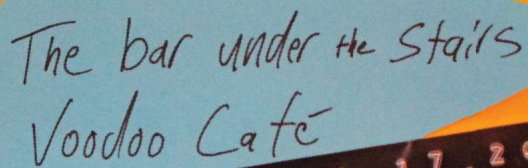 The bar under the Stairs
Voodoo Café